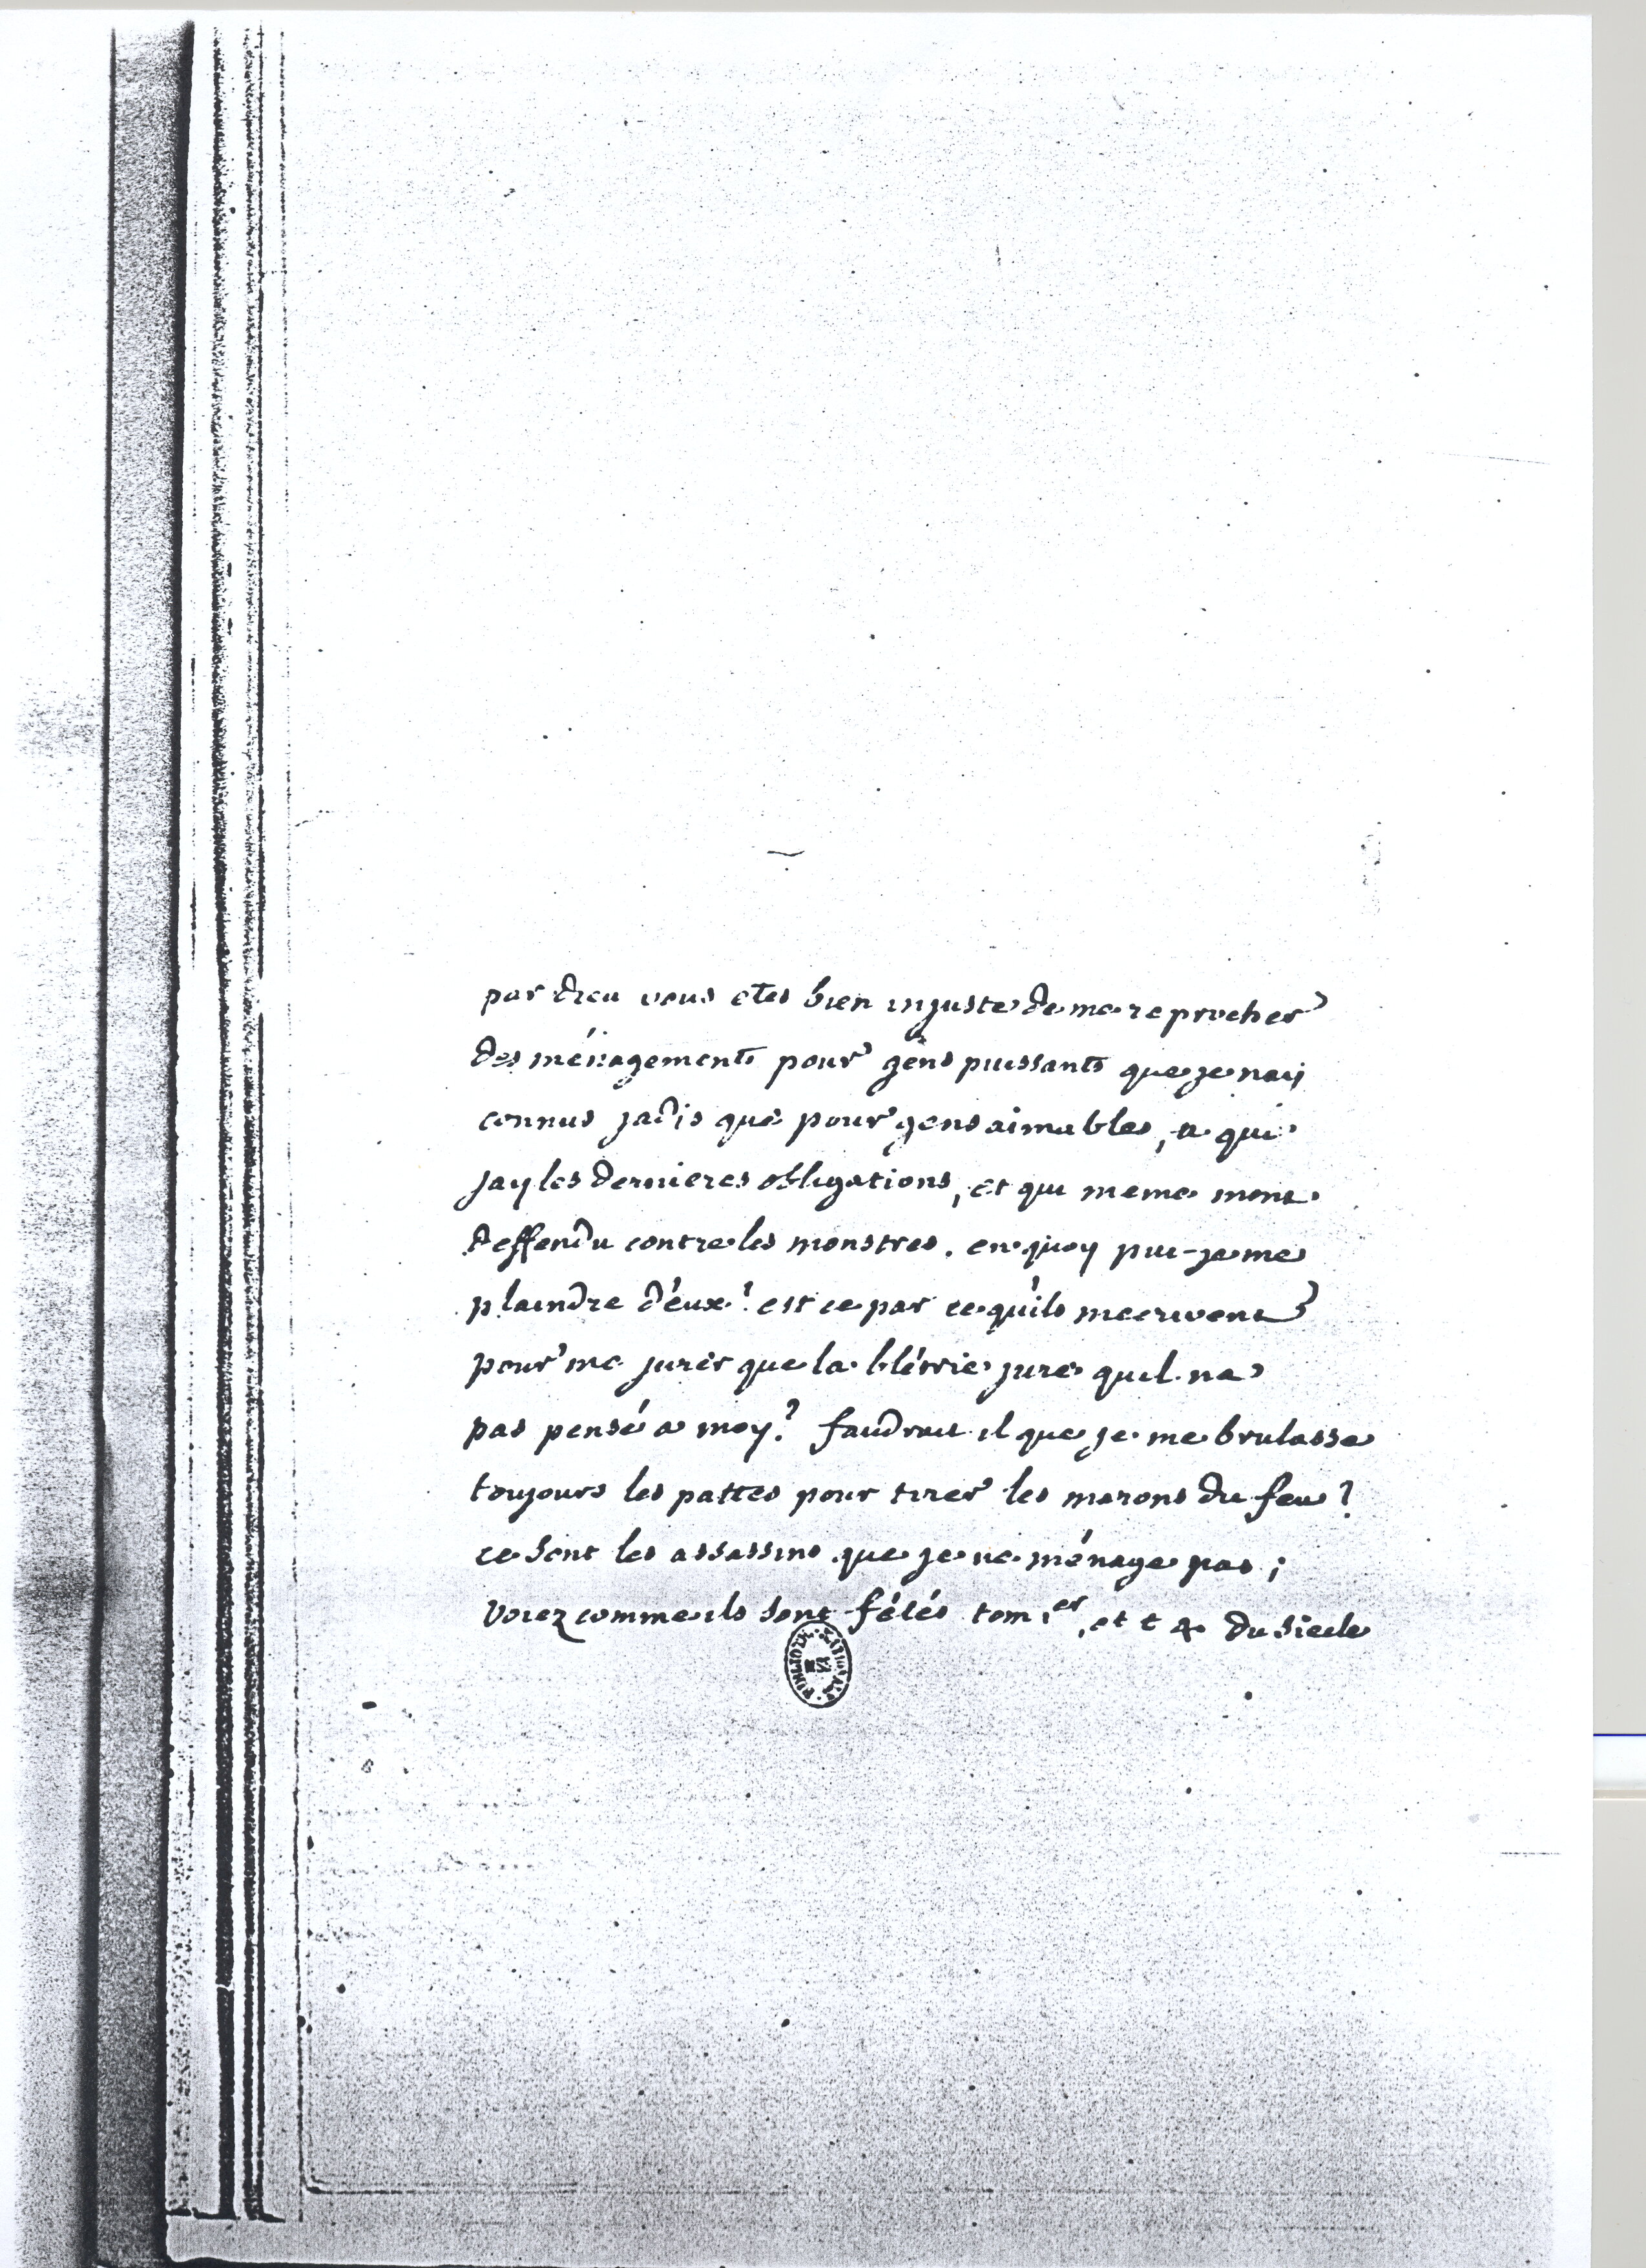 par dieu vous etes bien injuste de me reprocher
des ménagements pour gens puissants que je nay
connus jadis que pour gens aimables, a qui
jay les dernieres obligations, et qui meme mont
deffendu contre les monstres. en quoy pui-je me
plaindre d'eux? est ce par ce qu'ils mecrivent
pour me jurer que la blétrie jure quil na
pas pensé a moy? faudrait il que je me brulasse
toujours les pattes pour tirer les marons du feu?
ce sont les assassins que je ne ménage pas;
voiez comme ils sont fétés tom 1er, et t 4 du siecle
BIBLIOTH. NATIONALE MSS